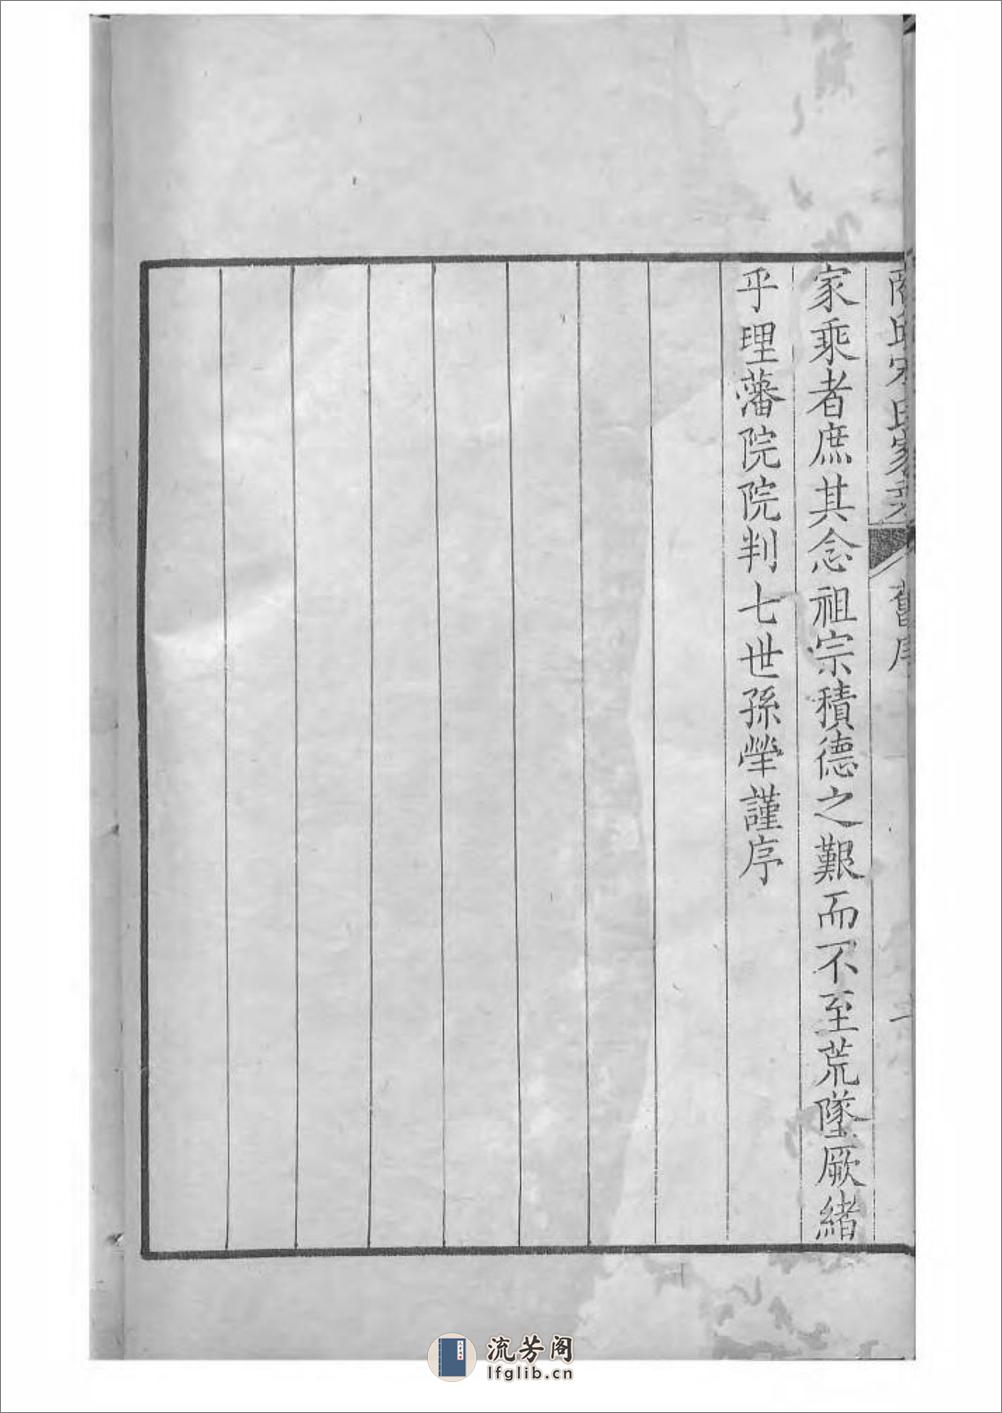 商邱宋氏家乘
舊序
家乘者庶其念祖宗積德之艱而不至荒墜厥緒
乎理藩院院判七世孫犖謹序
流芳阁
lfglib.cn